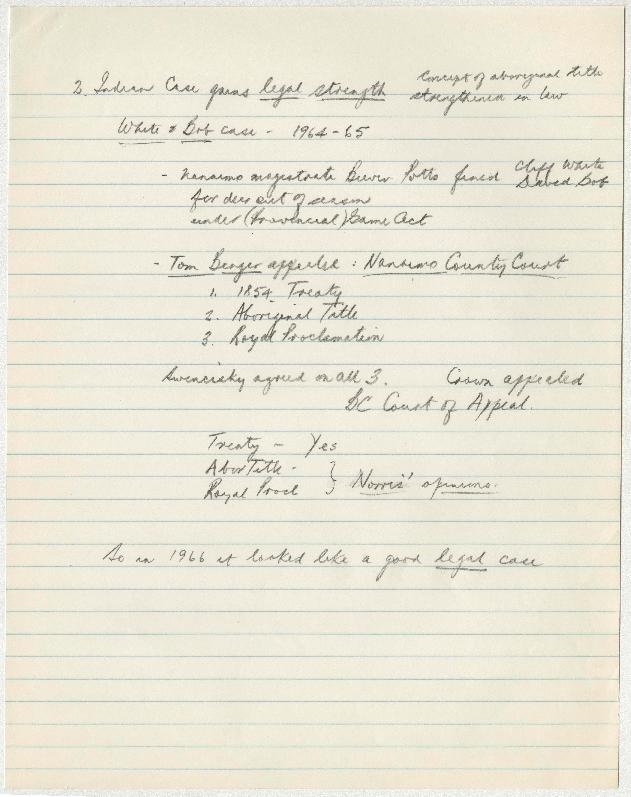 2. Indian Case gains legal strength
Concept of aboriginal title
strengthened in law
White & Bob case - 1964-65
- Nanaimo magistrate Potts fined Cliff White
David Bob
for deer out of season
under (Provincial) Game Act
- Tom Berger appealed : Nanaimo County Court
1. 1854 Treaty
2. Aboriginal Title
3. Royal Proclamation
Swencisky agreed on all 3. Crown appealed
BC Court of Appeal.
Treaty - Yes
Abor Title -
Royal Procl } Norris' opinions.
So in 1966 it looked like a good legal case